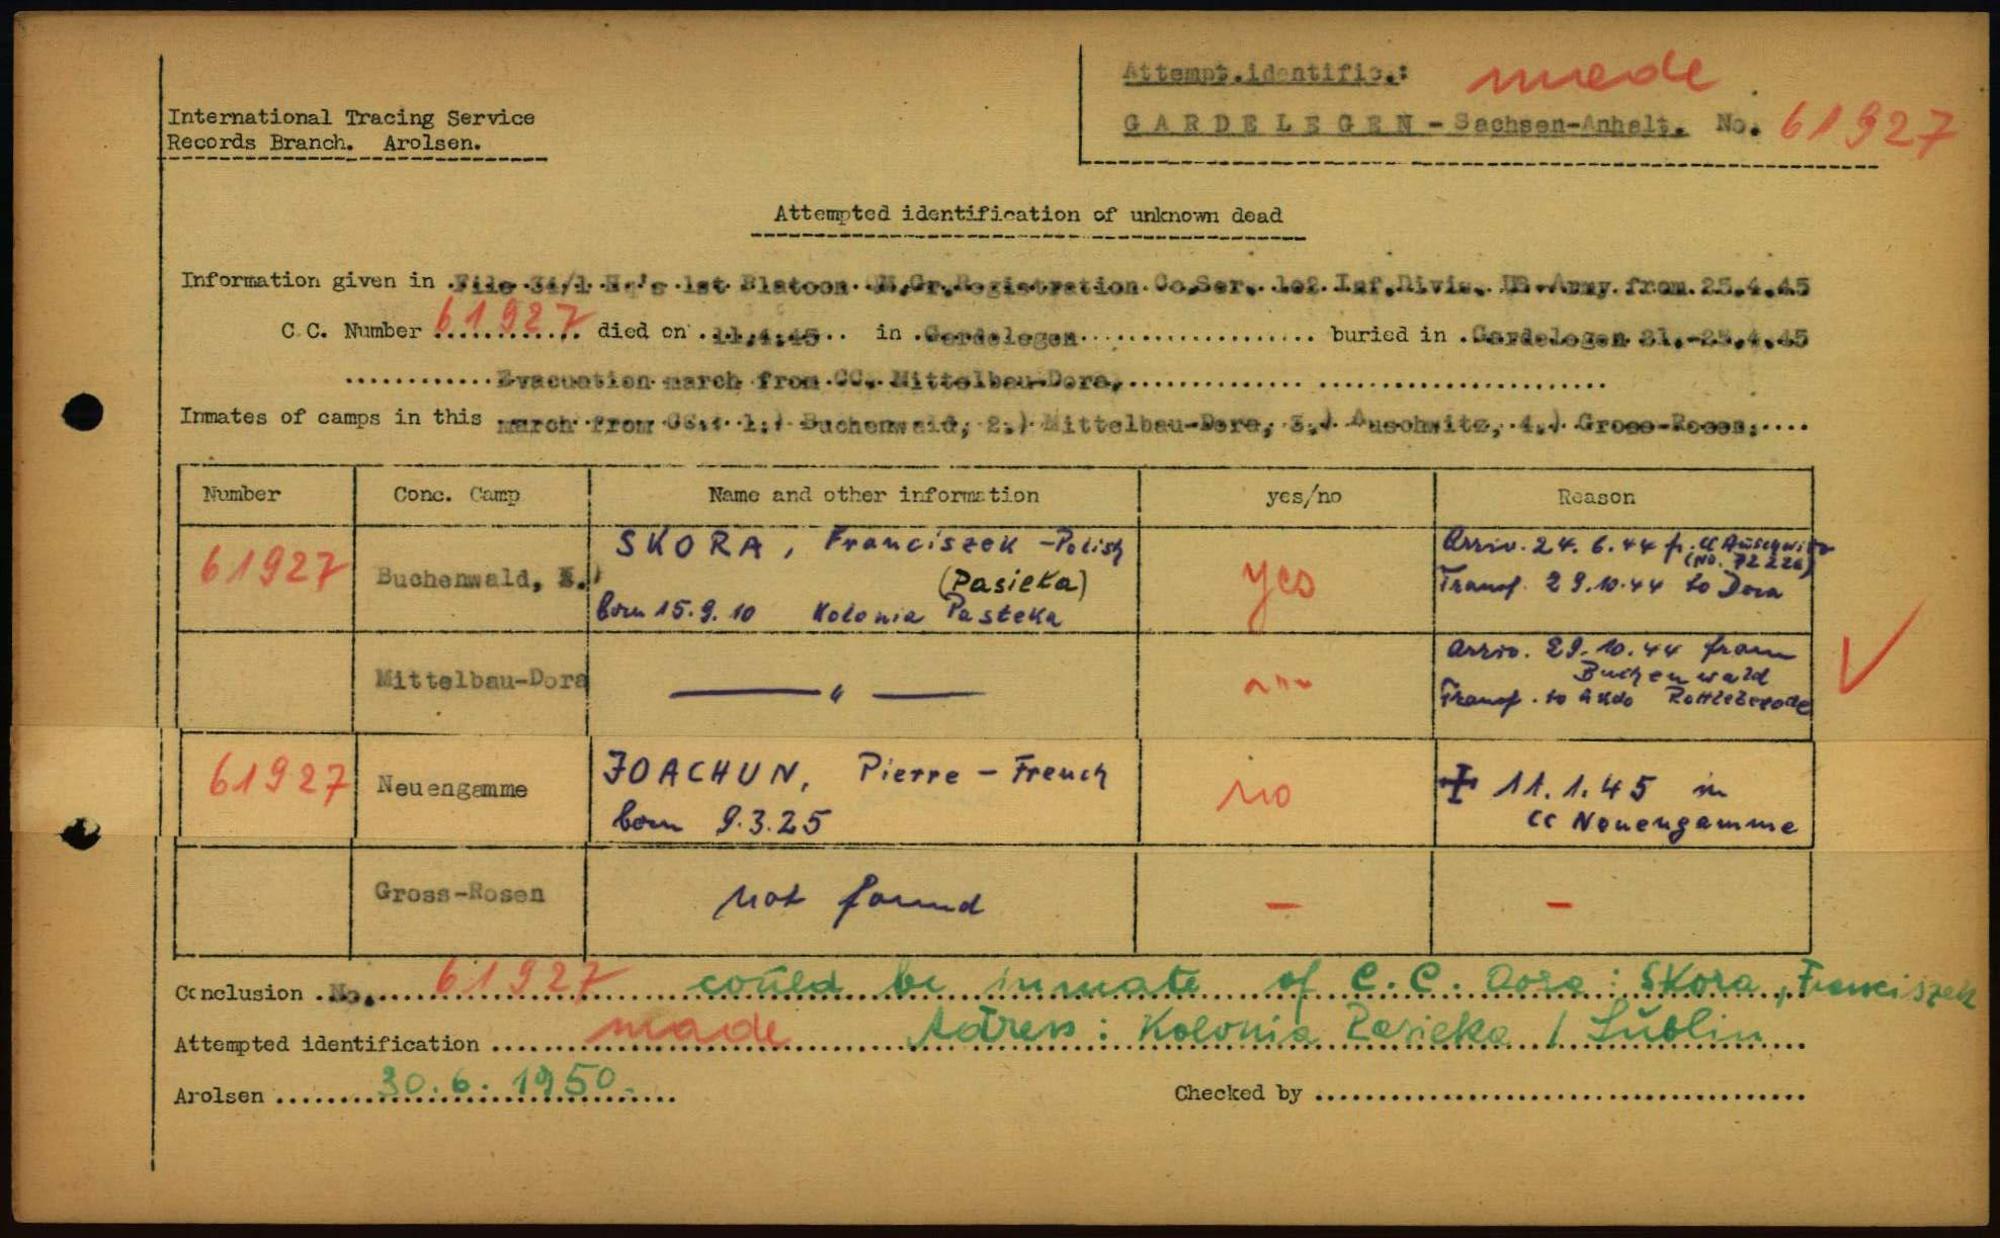 Attempt.identific.: made
International Tracing Service
Records Branch. Arolsen.
GARDELEGEN - Sachsen-Anhalt. No. 61927
Attempted identification of unknown dead
Information given in File Registration Co.Ser. Inf.Divis. US.Army from 25.4.45
C.C. Number 61927 died on 11.4.45 in Gardelegen buried in Gardelegen 21.-25.4.45
Evacuation march from CC. Mittelbau-Dora,
Inmates of camps in this march from CC.: 1.) Buchenwald, 2.) Mittelbau-Dora, 3.) Auschwitz, 4.) Gross-Rosen,
Number Conc. Camp Name and other information yes/no Reason
61927 Buchenwald, SKORA, Franciszek - Polish yes Arriv. 24.6.44 fr. CC Auschwitz
(Pasieka) (No. 72226)
born 15.9.10 Kolonia Pasteka Transf. 29.10.44 to Dora
Mittelbau-Dora — " — Arriv. 29.10.44 from
Buchenwald
Transf. to Akdo Rottleberode
61927 Neuengamme JOACHUN, Pierre - French no ✝ 11.1.45 in
born 9.3.25 CC Neuengamme
Gross-Rosen not found — —
Conclusion No. 61927 could be inmate of C.C. Dora: Skora, Franciszek
Attempted identification made Adress: Kolonia Pasieka / Lublin
Arolsen 30.6.1950. Checked by